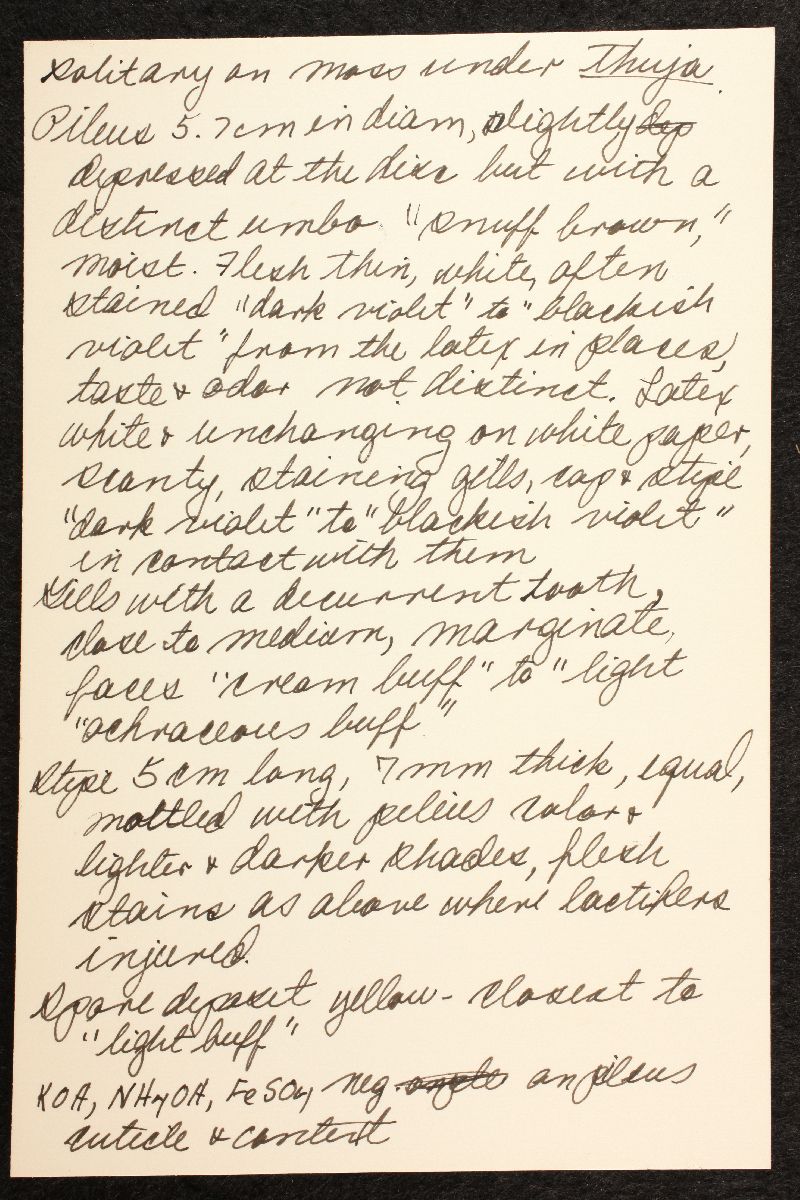 Solitary on moss under Thuja.
Pileus 5.7cm in diam, slightly dep
depressed at the disc but with a
distinct umbo "snuff brown,"
moist. Flesh thin, white, often
stained "dark violet" to "blackish
violet" from the latex in places,
taste & odor not distinct. Latex
white & unchanging on white paper,
scanty, staining gills, cap & stipe
"dark violet" to "blackish violet"
in contact with them
Gills with a decurrent tooth,
close to medium, marginate,
faces "cream buff" to "light
"ochraceous buff"
Stipe 5 cm long, 7mm thick, equal,
mottled with pileus color &
lighter & darker shades, flesh
stains as above where lactifers
injured.
Spore deposit yellow - closest to
"light buff"
KOH, NH4OH, FeSO4 neg. on pileus
cuticle & context